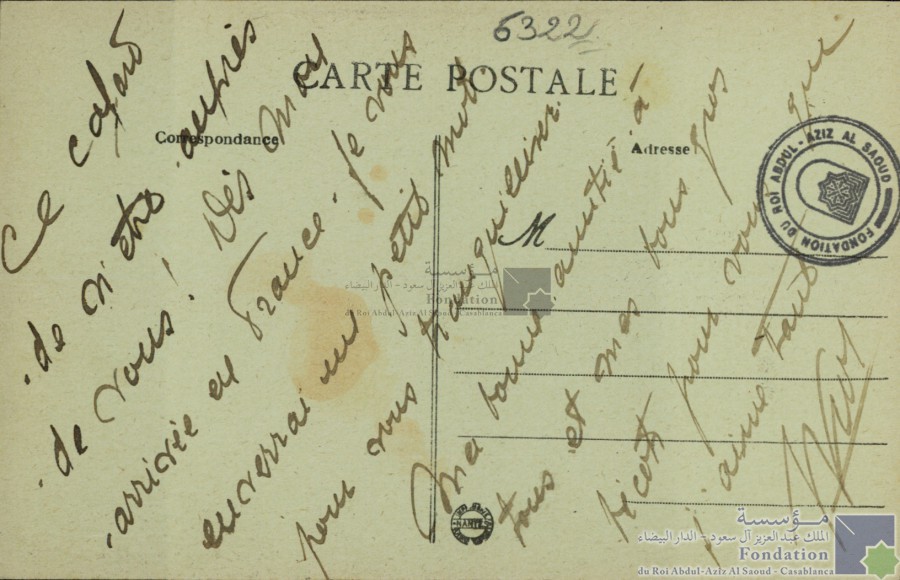 6322
CARTE POSTALE
Correspondance
Adresse
M
Ce cafard
de n'être auprès
de vous! Dès mon
arrivée en France je vous
enverrai un petit mot
pour vous tranquilliser.
Ma bonne amitié à
tous et mes bons gros
bécots pour vous que
j'aime tant
FONDATION DU ROI ABDUL-AZIZ AL SAOUD
مؤسسة
الملك عبدالعزيز آل سعود - الدار البيضاء
Fondation
du Roi Abdul-Aziz Al Saoud - Casablanca
مؤسسة
الملك عبدالعزيز آل سعود - الدار البيضاء
Fondation
du Roi Abdul-Aziz Al Saoud - Casablanca